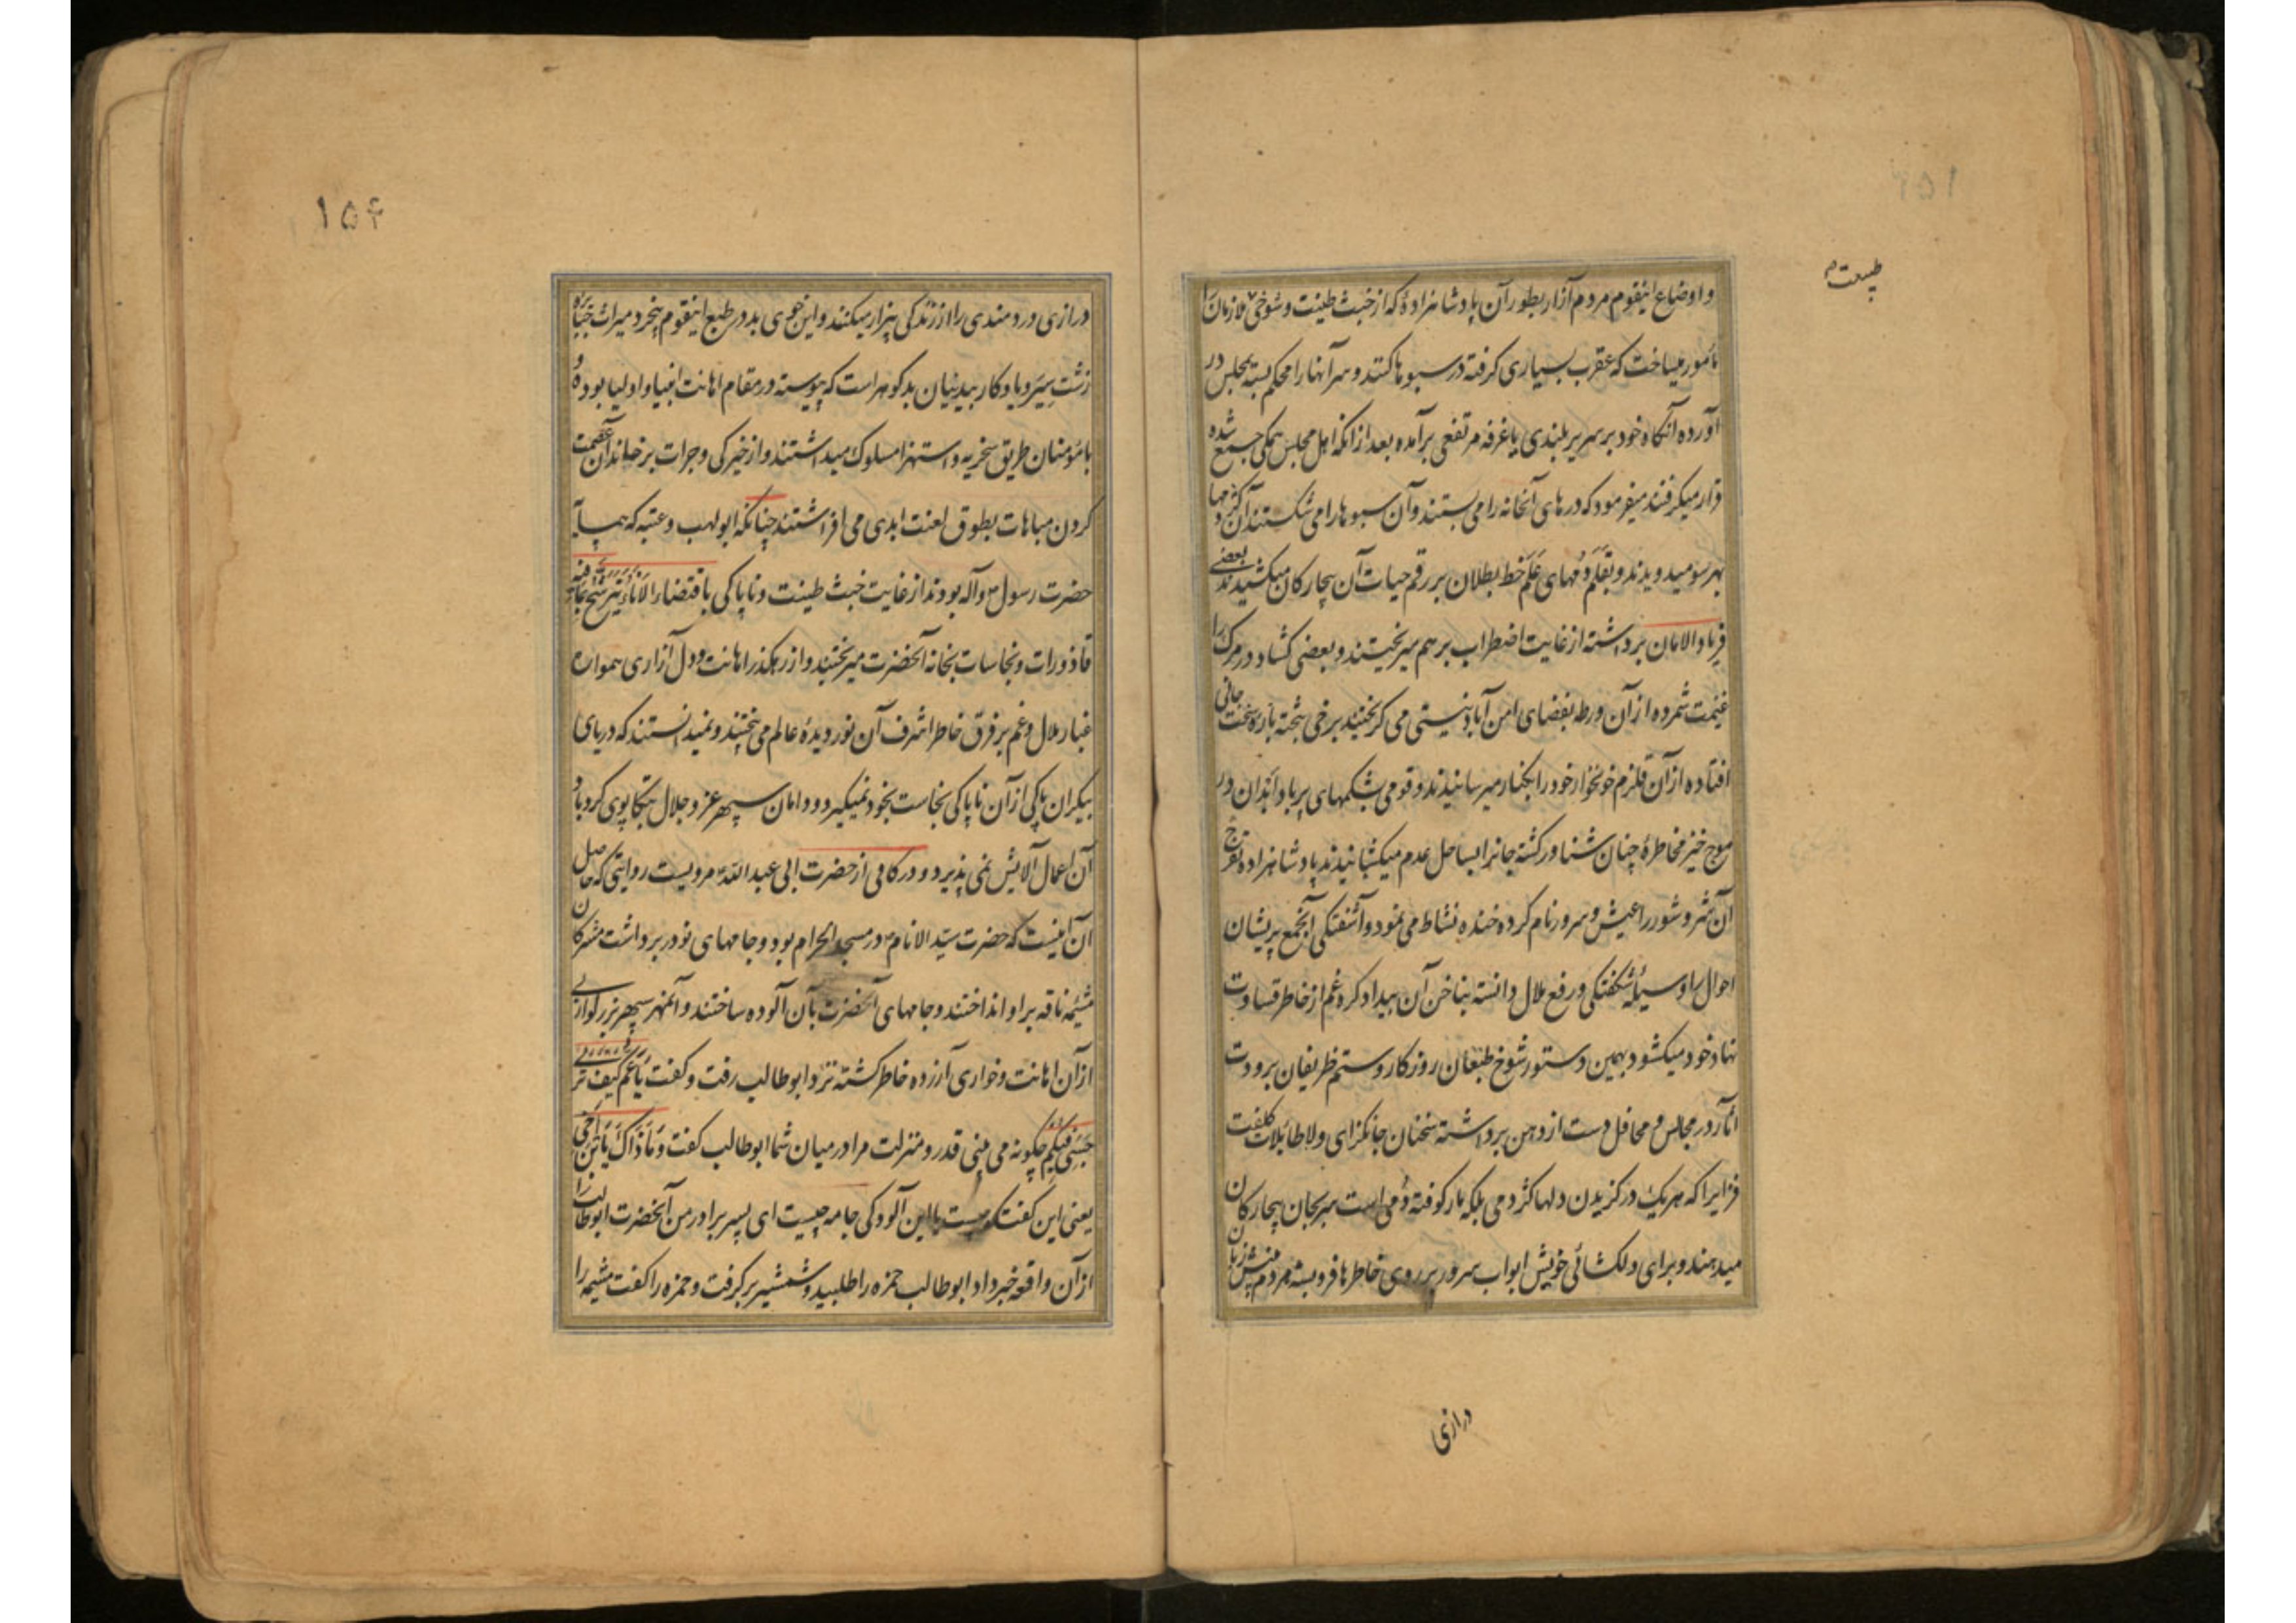 ۱۵۱
طیبت م
و اوضاع اینقوم مردم آزار بطور آن پادشاهزادهٔ که از خبث طینت و شوخی ملازمان را
مامور میساخت که عقرب بسیاری گرفته در سبوها کنند و سر آنها را محکم بسته بمجلس در
آورده آنگاه خود بر سریر بلندی یا غرفه مرتفعی برآمده بعد از انکه اهل مجلس همگی جمع شده
قرار میگرفتند میفرمود که درهای آنخانه را می بستند و آن سبوها را می شکستند آن کژدمها
بهر سو میدویدند و بقلم دمهای علم خط بطلان بر رقم حیات آن بیچارگان میکشیدند بعضی
فریاد الامان برداشته از غایت اضطراب بر هم میریختند و بعضی گشاد در مرگ را
غنیمت شمرده از آن ورطه بفضای امن آباد نیستی می گریختند برخی بتخته پارهٔ سخت جانی
افتاده از آن قلزم خونخوار خود را بکنار میرسانیدند و قومی بشکمهای پر باد آبدان در
موج خیز مخاطرهٔ چنان شناور گشته جانرا بساحل عدم میکشانیدند پادشاهزاده تفرج
آن شر و شور را عیش و سرور نام کرده خنده نشاط می نمود و آشفتگی آنجمع پریشان
احوال را وسیلهٔ شگفتگی و رفع ملال دانسته بناخن آن بیداد گره غم از خاطر قساوت
نهاد خود میگشود بهمین دستور شوخ طبعان روزگار و ستم ظریفان برودت
آثار در مجالس و محافل دست از دهن برداشته سخنان جانگزای و لاطایلات کلفت
فزایرا که هر یک در گزیدن دلها کژدمی بلکه مار کوفته دمی است سر بجان بیچارگان
میدهند و برای دلگشائی خویش ابواب سرور بر روی خاطرها فروبسته مردم منش زبان
درازی
۱۵۴
درازی دردمندی را از زندگی بیزار میکنند و این خوی بد در طبع اینقوم بیخرد میراث جبابره
زشت سیر و یادگار بیدینان بدگوهر است که پیوسته در مقام اهانت انبیا و اولیا بوده و
با مومنان طریق سخریه و استهزا مسلوک میداشتند و از خیرگی و جرات بر خاندان عصمت
گردن مباهات بطوق لعنت ابدی می افراشتند چنانکه ابولهب و عتبه که همسایهٔ
حضرت رسول ص و آله بودند از غایت خبث طینت و ناپاکی باقتضاء الاناء یترشح بما فیه
قاذورات و نجاسات بخانه آنحضرت میریختند و از رهگذر اهانت و دل آزاری همواره
غبار ملال و غم بر فرق خاطر اشرف آن نور دیدهٔ عالم می بیختند و نمیدانستند که دریای
بیکران پاکی از آن ناپاکی نجاست بخود نمیگیرد و دامان سپهر عز و جلال بتکاپوی گردباد
آن اعمال آلایش نمی پذیرد و در کافی از حضرت ابی عبد الله ع مرویست روایتی که حاصل
آن اینست که حضرت سید الانام ص در مسجد الحرام بود و جامهای نو در بر داشت مشرکان
مشیمه ناقه بر او انداختند و جامهای آنحضرت بآن آلوده ساختند و آنمهر سپهر بزرگواری
از آن اهانت و خواری آزرده خاطر گشته نزد ابوطالب رفت و گفت یا عم کیف تری
حسبی فیکم چگونه می بینی قدر و منزلت مرا در میان شما ابوطالب گفت و ما ذاک یا بن اخی
یعنی این گفتگو چیست یا این آلودگی جامه چیست ای پسر برادر من آنحضرت ابوطالب را
از آن واقعه خبر داد ابوطالب حمزه را طلبید و شمشیر برگرفت و حمزه را گفت مشیمه را